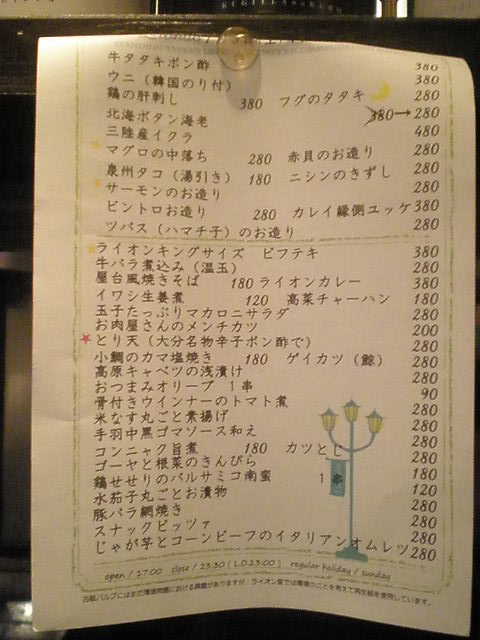 牛タタキポン酢 380
ウニ（韓国のり付） 380
鶏の肝刺し 380 フグのタタキ 280
北海ボタン海老 380→280
三陸産イクラ 480
マグロの中落ち 280 赤貝のお造り 280
泉州タコ（湯引き） 180 ニシンのきずし 280
サーモンのお造り 280
ビントロお造り 280 カレイ縁側ユッケ 380
ツバス（ハマチ子）のお造り 280
ライオンキングサイズ ビフテキ 380
牛バラ煮込み（温玉） 280
屋台風焼きそば 180 ライオンカレー 380
イワシ生姜煮 120 高菜チャーハン 180
玉子たっぷりマカロニサラダ 280
お肉屋さんのメンチカツ 200
とり天（大分名物辛子ポン酢で） 280
小鯛のカマ塩焼き 180 ゲイカツ（鯨） 280
高原キャベツの浅漬け 280
おつまみオリーブ 1串 90
骨付きウインナーのトマト煮 280
米なす丸ごと素揚げ 280
手羽中黒ゴマソース和え 280
コンニャク旨煮 180 カツとじ 280
ゴーヤと根菜のきんぴら 280
鶏せせりのバルサミコ南蛮 1串 180
水茄子丸ごとお漬物 120
豚バラ網焼き 280
スナックピッツァ 280
じゃが芋とコーンビーフのイタリアンオムレツ 280
open / 17:00 close / 23:30 [ L.O 23:00 ] regular holiday / sunday